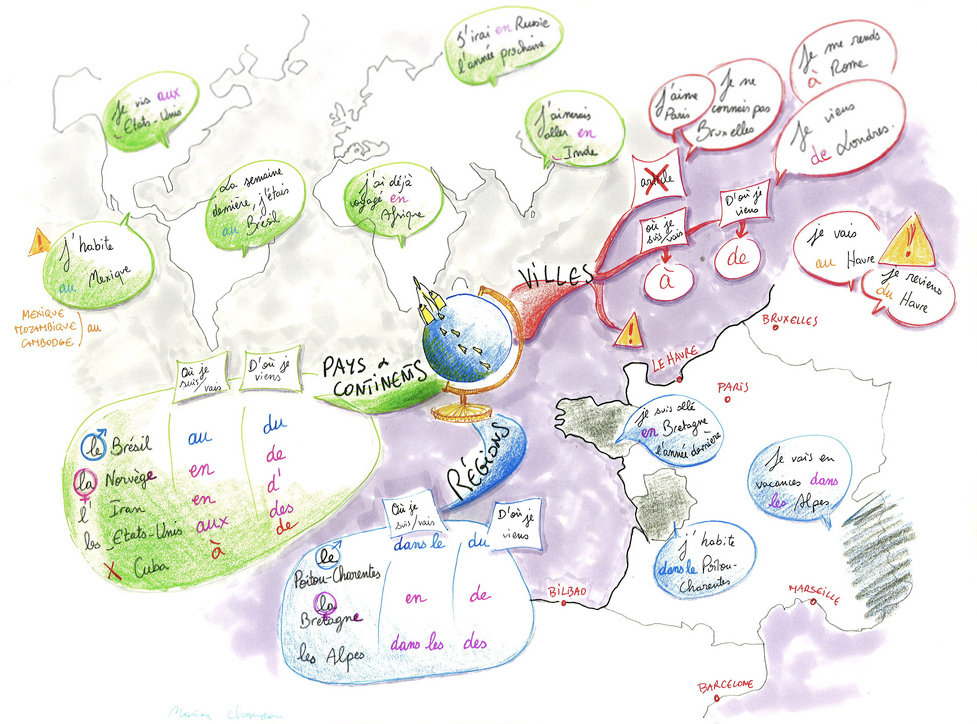 J'irai en Russie
l'année prochaine
Je vis aux
Etats-Unis
J'aimerais
aller en
Inde
La semaine
dernière, j'étais
au Brésil
j'ai déjà
voyagé en
Afrique
! j'habite
au Mexique
MEXIQUE
MOZAMBIQUE
CAMBODGE
au
J'aime
Paris
Je ne
connais pas
Bruxelles
Je me rends
à Rome
Je viens
de Londres.
article
où je
suis/vais
D'où je
viens
à
de
VILLES
!
je vais
au Havre
!!
je reviens
du Havre
PAYS &
CONTINENTS
Où je
suis/vais
D'où je
viens
le Brésil au du
la Norvège en de
l' Iran en d'
les Etats-Unis aux des
X Cuba à de
RÉGIONS
Où je
suis/vais
D'où je
viens
le
Poitou-Charentes dans le du
la
Bretagne en de
les Alpes dans les des
BRUXELLES
LE HAVRE
PARIS
je suis allé
en Bretagne
l'année dernière
Je vais en
vacances dans
les Alpes
j'habite
dans le Poitou-
Charentes
BILBAO
MARSEILLE
BARCELONE